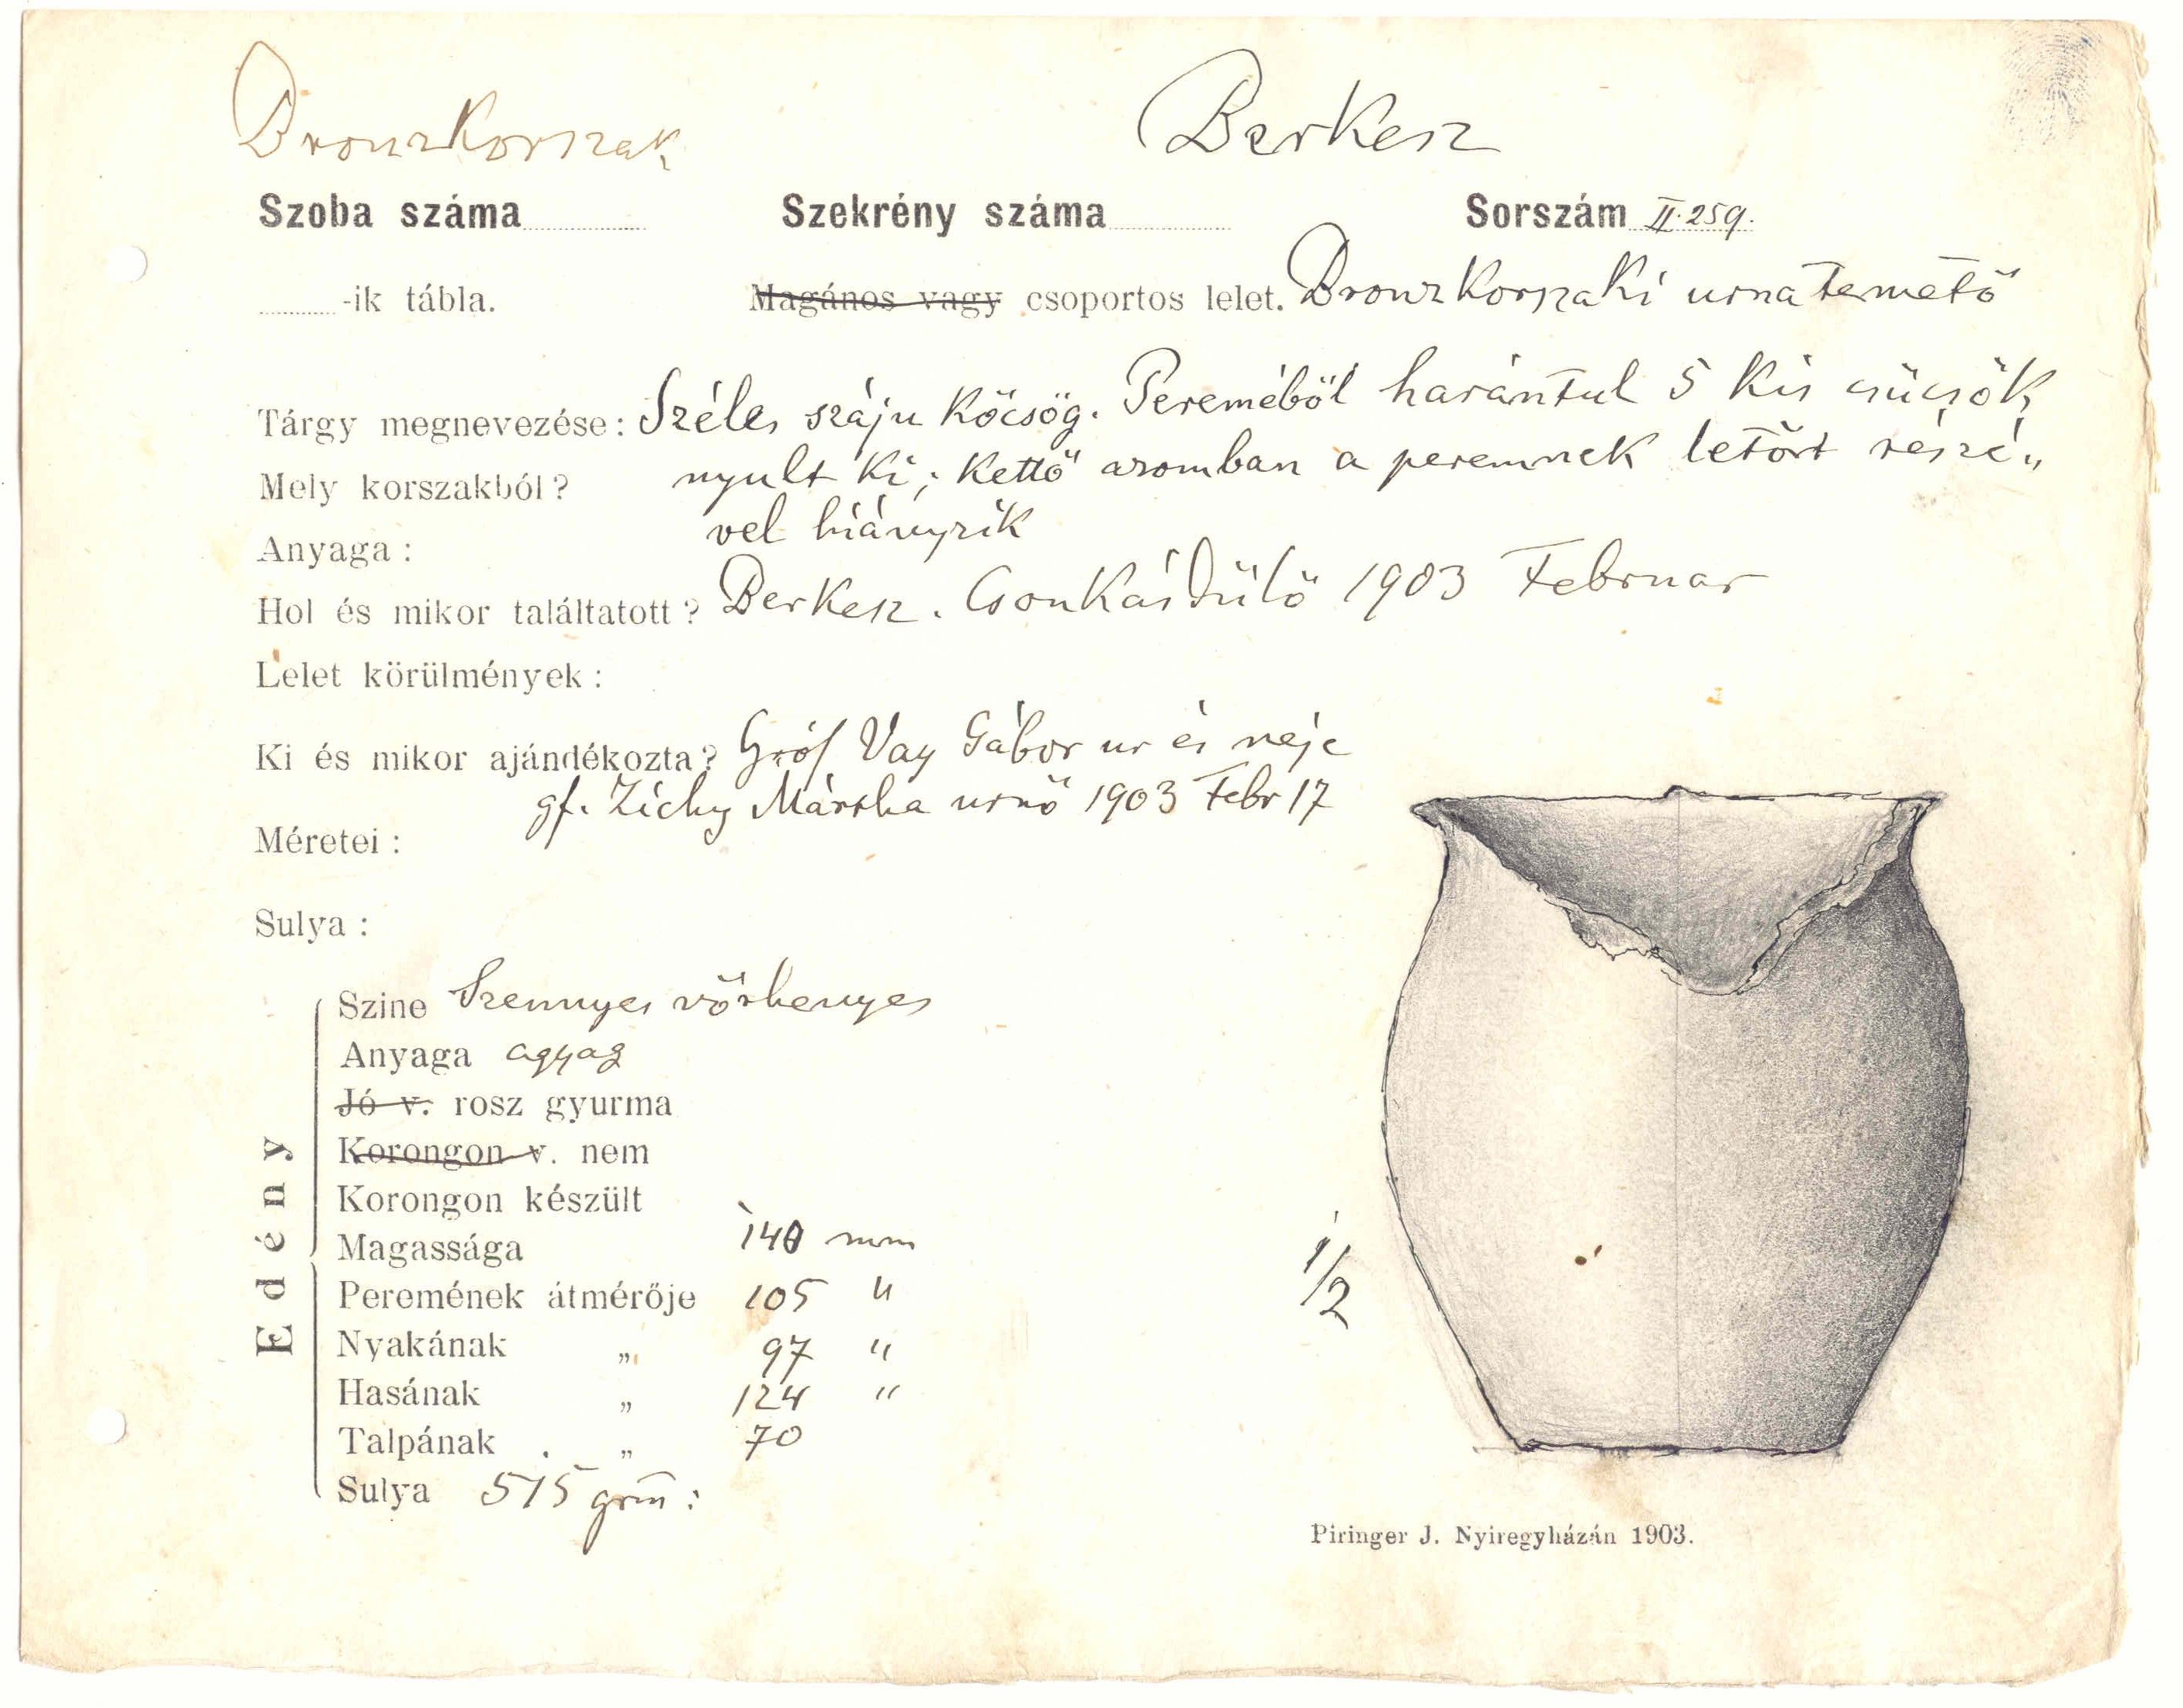 Bronzkorszak Berkesz
Szoba száma Szekrény száma Sorszám II. 259.
-ik tábla. Magános vagy csoportos lelet. Bronzkorszaki urnatemető
Tárgy megnevezése: Széles száju köcsög. Pereméből harántul 5 kis csücsök
Mely korszakból? nyult ki; kettő azomban a peremnek letört részé„
Anyaga: vel hiányzik
Hol és mikor találtatott? Berkesz. Csonkásdülő 1903 Februar
Lelet körülmények:
Ki és mikor ajándékozta? Gróf Vay Gábor ur és neje
gf. Zichy Mártha urnő 1903 Febr 17
Méretei:
Sulya:
Edény
Szine Szennyes vörhenyes
Anyaga agyag
Jó v. rosz gyurma
Korongon v. nem
Korongon készült
Magassága 140 mm
Peremének átmérője 105 "
Nyakának „ 97 "
Hasának „ 124 "
Talpának . „ 70
Sulya 515 grm:
1/2
Piringer J. Nyiregyházán 1903.